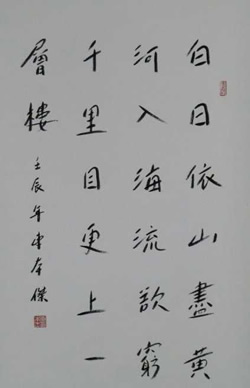 白日依山盡黃
河入海流欲窮
千里目更上一
層樓
壬辰年李本傑